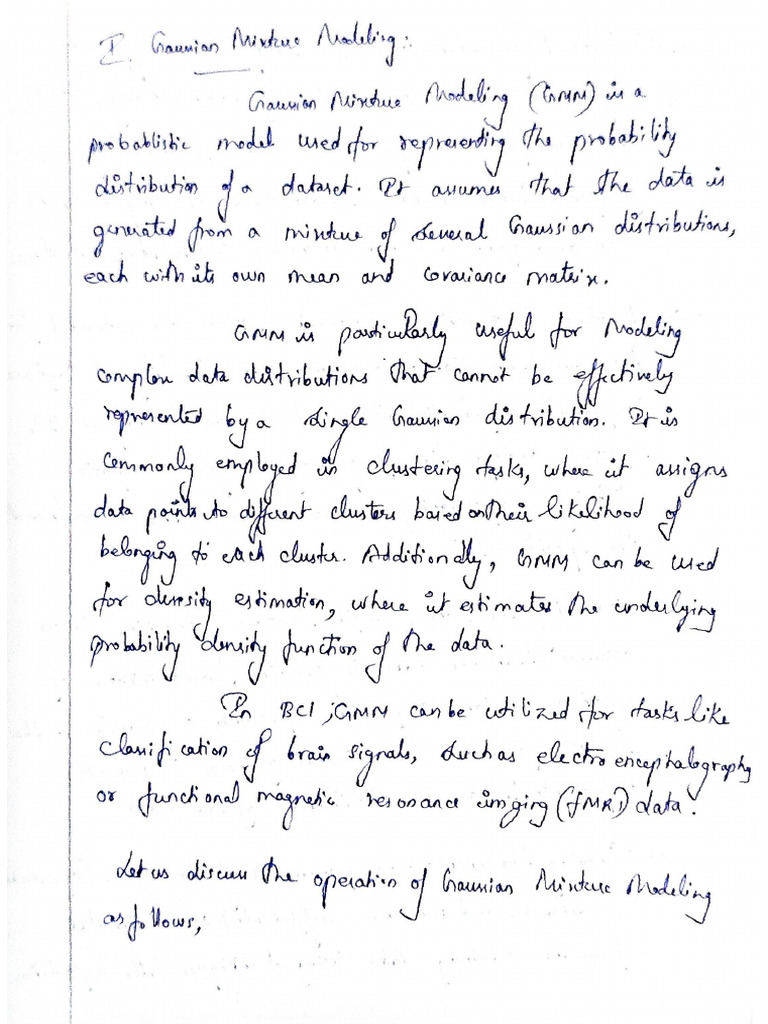 I. Gaussian Mixture Modeling:
Gaussian Mixture Modeling (GMM) is a
probablistic model used for representing the probability
distribution of a dataset. It assumes that the data is
generated from a mixture of several Gaussian distributions,
each with its own mean and covariance matrix.
GMM is particularly useful for Modeling
complex data distributions that cannot be effectively
represented by a single Gaussian distribution. It is
commonly employed in clustering tasks, where it assigns
data points to different clusters based on their likelihood of
belonging to each cluster. Additionally, GMM can be used
for density estimation, where it estimates the underlying
probability density function of the data.
In BCI, GMM can be utilized for tasks like
classification of brain signals, such as electroencephalography
or functional magnetic resonance imging (fMRI) data.
Let us discuss the operation of Gaussian Mixture Modeling
as follows,